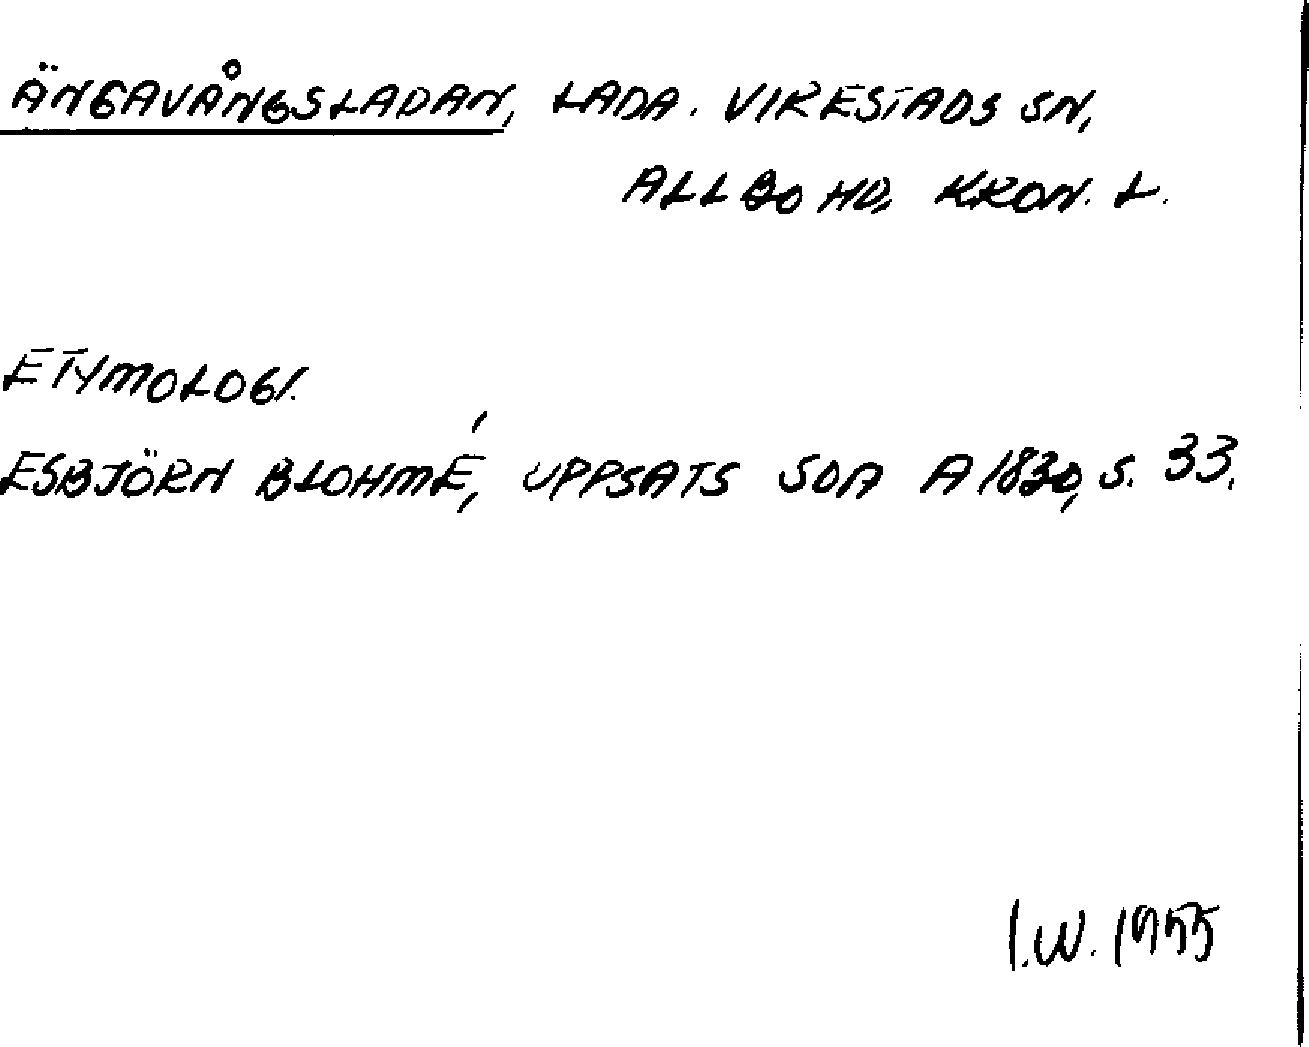 ÄNGAVÅNGSLADAN, LADA. VIRESTADS SN,
ALLBO HD, KRON. L.
ETYMOLOGI.
ESBJÖRN BLOHMÉ, UPPSATS SOA A 1830, S. 33.
I.W. 1955